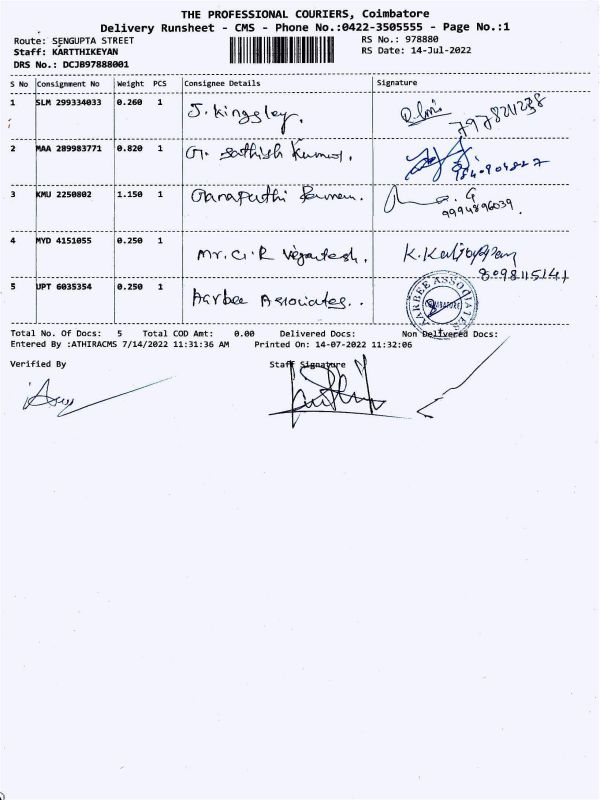 THE PROFESSIONAL COURIERS, Coimbatore
Delivery Runsheet - CMS - Phone No.:0422-3505555 - Page No.:1
Route: SENGUPTA STREET RS No.: 978880
Staff: KARTTHIKEYAN RS Date: 14-Jul-2022
DRS No.: DCJB97888001
S No Consignment No Weight PCS Consignee Details Signature
1 SLM 299334033 0.260 1 J. Kingsley.
2 MAA 289983771 0.820 1 G. Sathish Kumar.
3 KMU 2250802 1.150 1 Ganapathi
9994896039.
4 MYD 4151055 0.250 1 Mr. G. R
8098115141
5 UPT 6035354 0.250 1 Aarbee Associates..
AARBEE ASSOCIATES
COIMBATORE
Total No. Of Docs: 5 Total COD Amt: 0.00 Delivered Docs: Non Delivered Docs:
Entered By :ATHIRACMS 7/14/2022 11:31:36 AM Printed On: 14-07-2022 11:32:06
Verified By Staff Signature